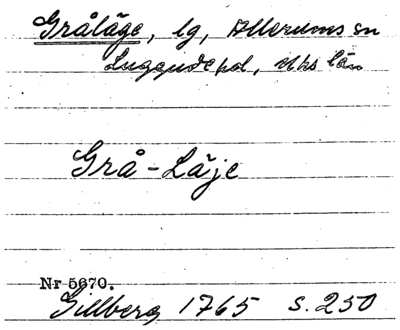 Gråläge, lg, Allerums sn
Luggude hd, Mhs län
Grå-Läje
Nr 5670.
Gillberg 1765 s. 250